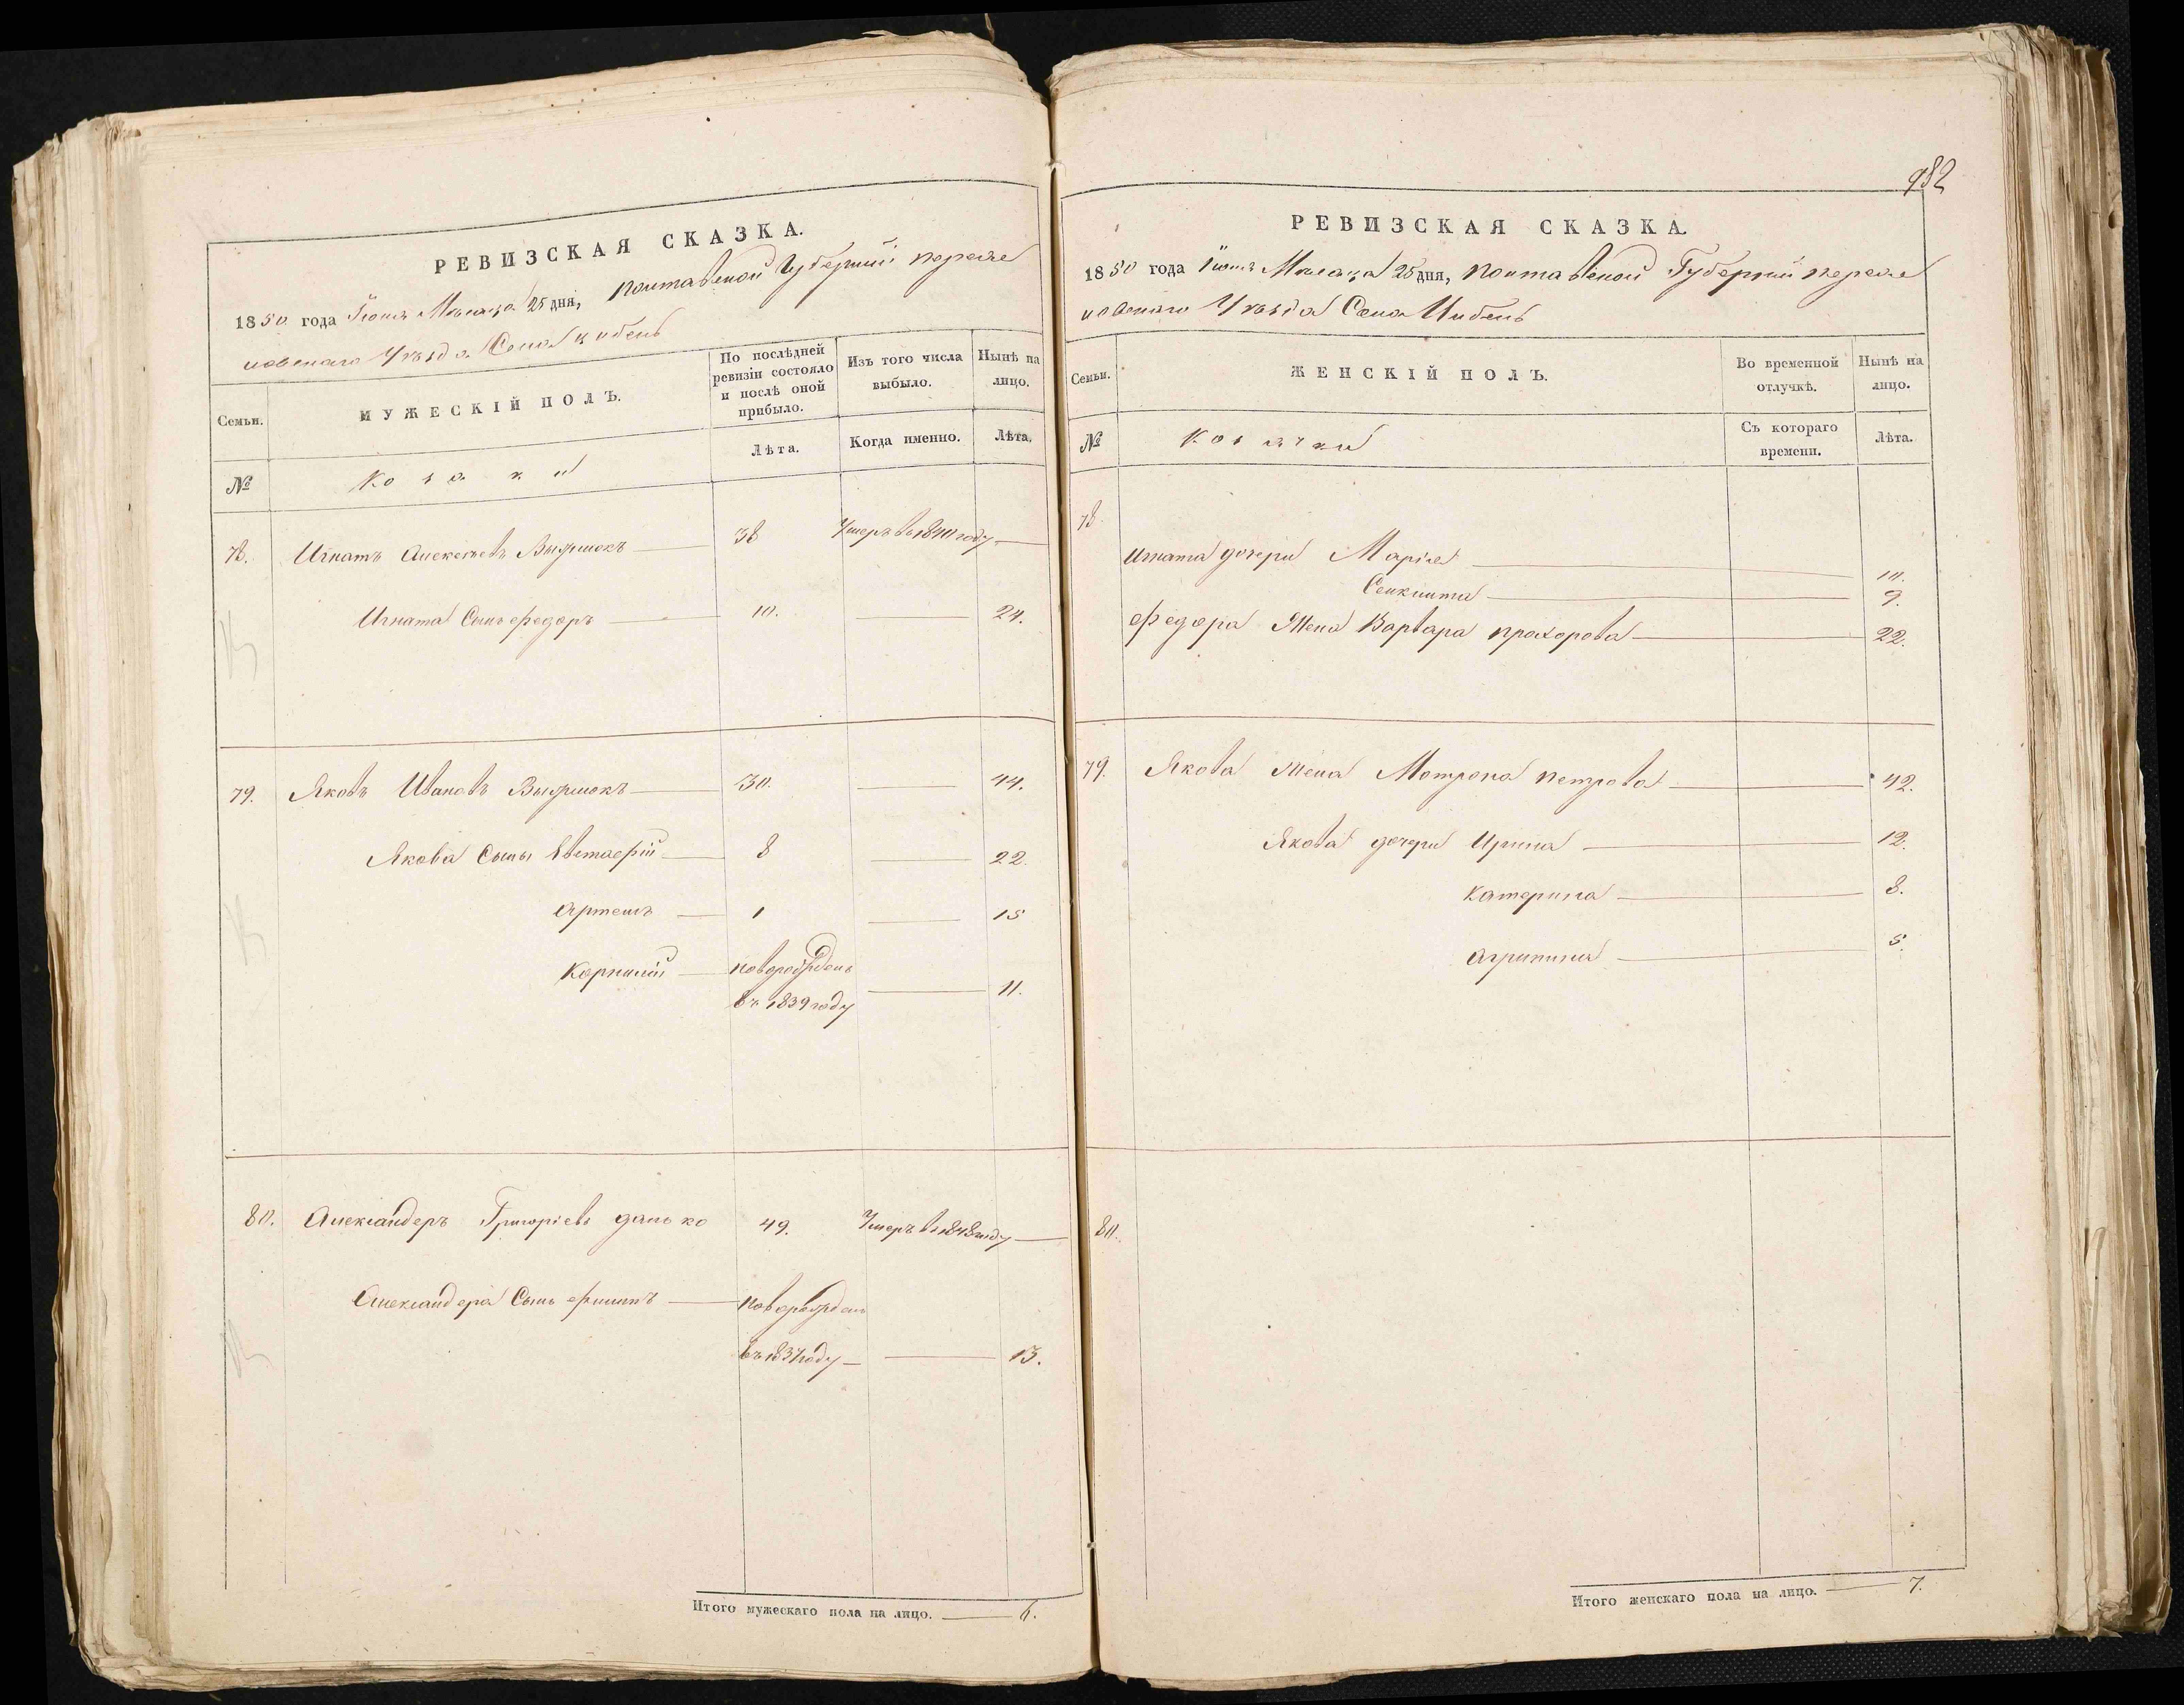 РЕВИЗСКАЯ СКАЗКА.
1850 года Іюня Месяца 25 дня, Полтавской Губерніи переяс
ловскаго Уѣзда Села Цибель
Семьи.
МУЖЕСКІЙ ПОЛЪ.
По послѣдней ревизіи состояло и послѣ оной прибыло.
Изъ того числа выбыло.
Нынѣ на лицо.
№
Козаки
Лѣта.
Когда именно.
Лѣта.
78. Игнатъ Алексѣевъ 38 Умеръ въ 1840 году
Игната Сынъ Федоръ 10. 24.
79. Яковъ Ивановъ 30. 44.
Якова Сыны Евстафій 8 22.
Артемъ 1 15
Корнилій новорожденъ
въ 1839 году 11.
80. Александеръ Григоріевъ данько 49. Умеръ въ 1848 году
Александера Сынъ Филипъ новорожденъ
въ 1837 году 13.
Итого мужескаго пола на лицо. 6.
982
РЕВИЗСКАЯ СКАЗКА.
1850 года Іюня Месяца 25 дня, Полтавской Губерніи переяс
ловскаго Уѣзда Села Цибель
Семьи.
ЖЕНСКІЙ ПОЛЪ.
Во временной отлучкѣ.
Нынѣ на лицо.
№
Козачки
Съ котораго времени.
Лѣта.
78.
Игната дочери Марія 10.
9.
Федора Жена Варвара прохорова 22.
79. Якова Жена Мотрона петрова 42.
Якова дочери Ирина 12.
Катерина 8.
Агрипина 5.
80.
Итого женскаго пола на лицо. 7.